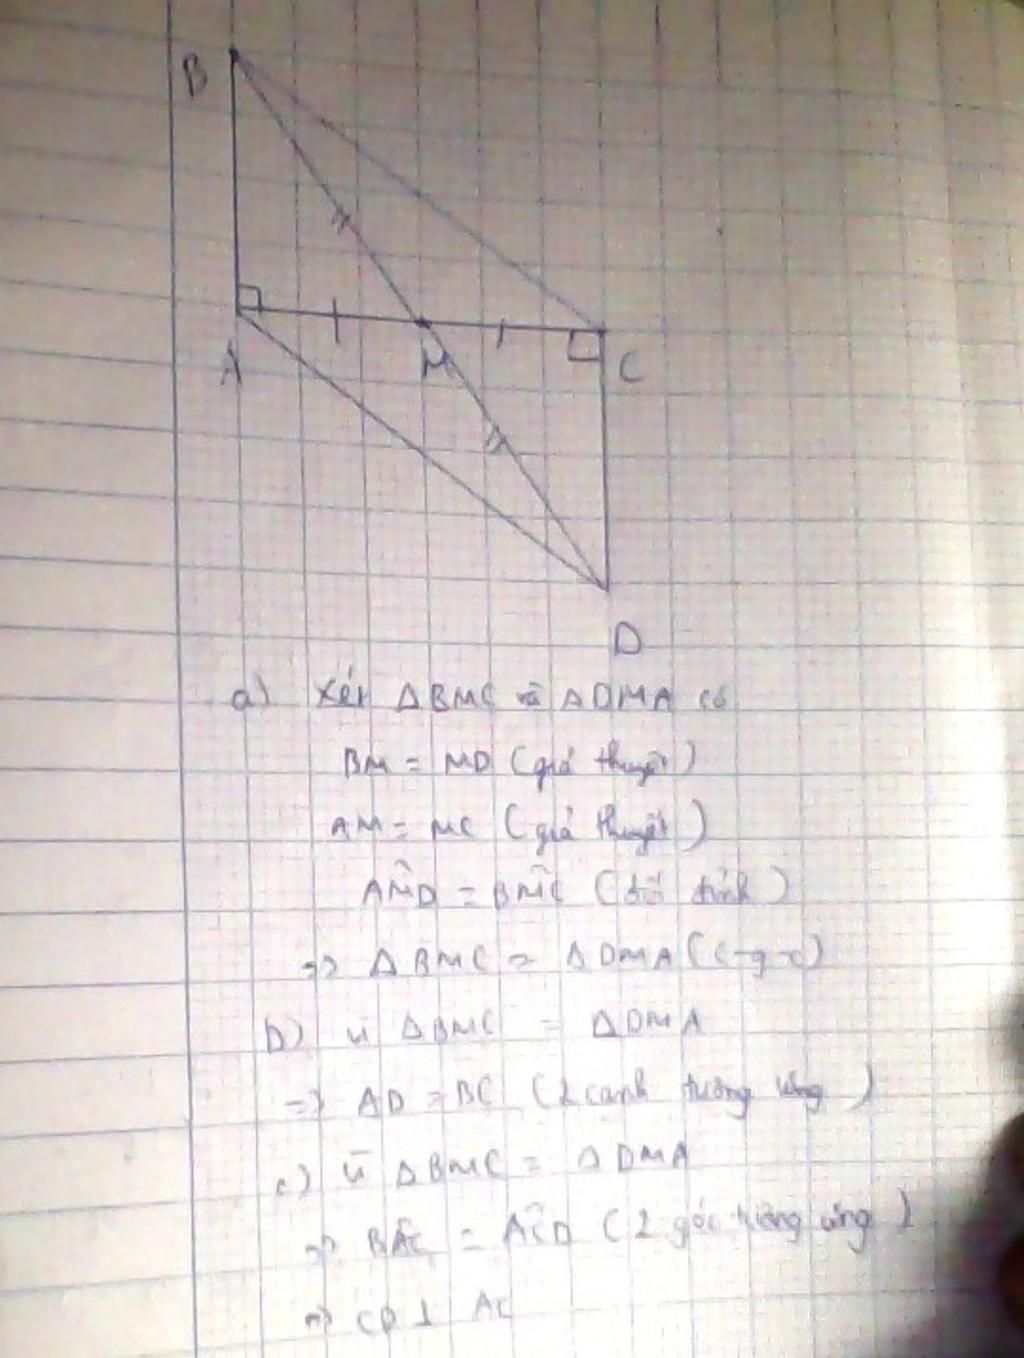 B
A
M
C
D
a) Xét ΔBMC và ΔDMA có
BM = MD (giả thuyết)
AM = MC (giả thuyết)
AM̂D = BM̂C (đối đỉnh)
=> ΔBMC = ΔDMA (c-g-c)
b) Vì ΔBMC = ΔDMA
=> AD = BC (2 cạnh tương ứng)
c) Vì ΔBMC = ΔDMA
=> BÂC = AĈD (2 góc tương ứng)
=> CD ⊥ AC